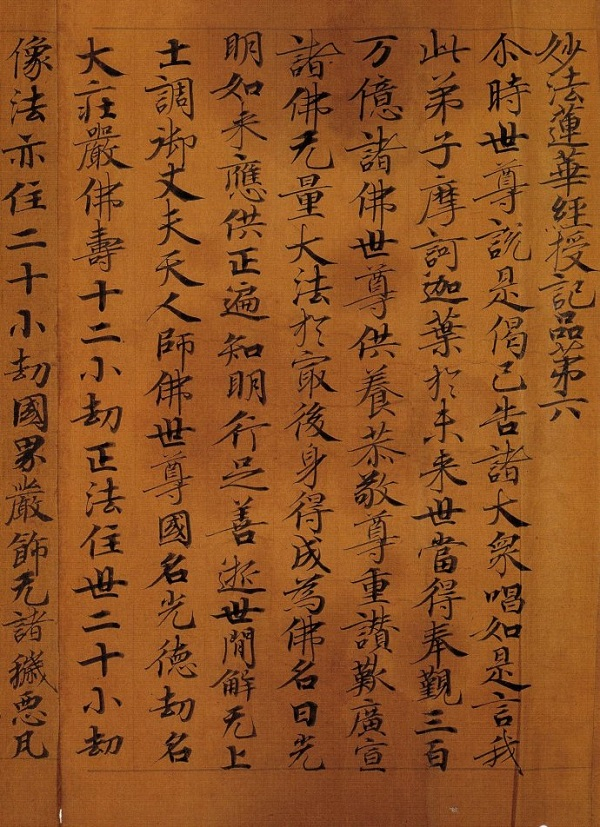 妙法蓮華經授記品第六
尒時世尊說是偈已告諸大衆唱如是言我
此弟子摩訶迦葉於未来世當得奉覲三百
万億諸佛世尊供養恭敬尊重讃歎廣宣
諸佛无量大法於㝡後身得成為佛名曰光
明如来應供正遍知明行足善逝世閒解无上
士調御丈夫天人師佛世尊國名光德劫名
大莊嚴佛壽十二小劫正法住世二十小劫
像法亦住二十小劫國界嚴飾无諸穢悪凡